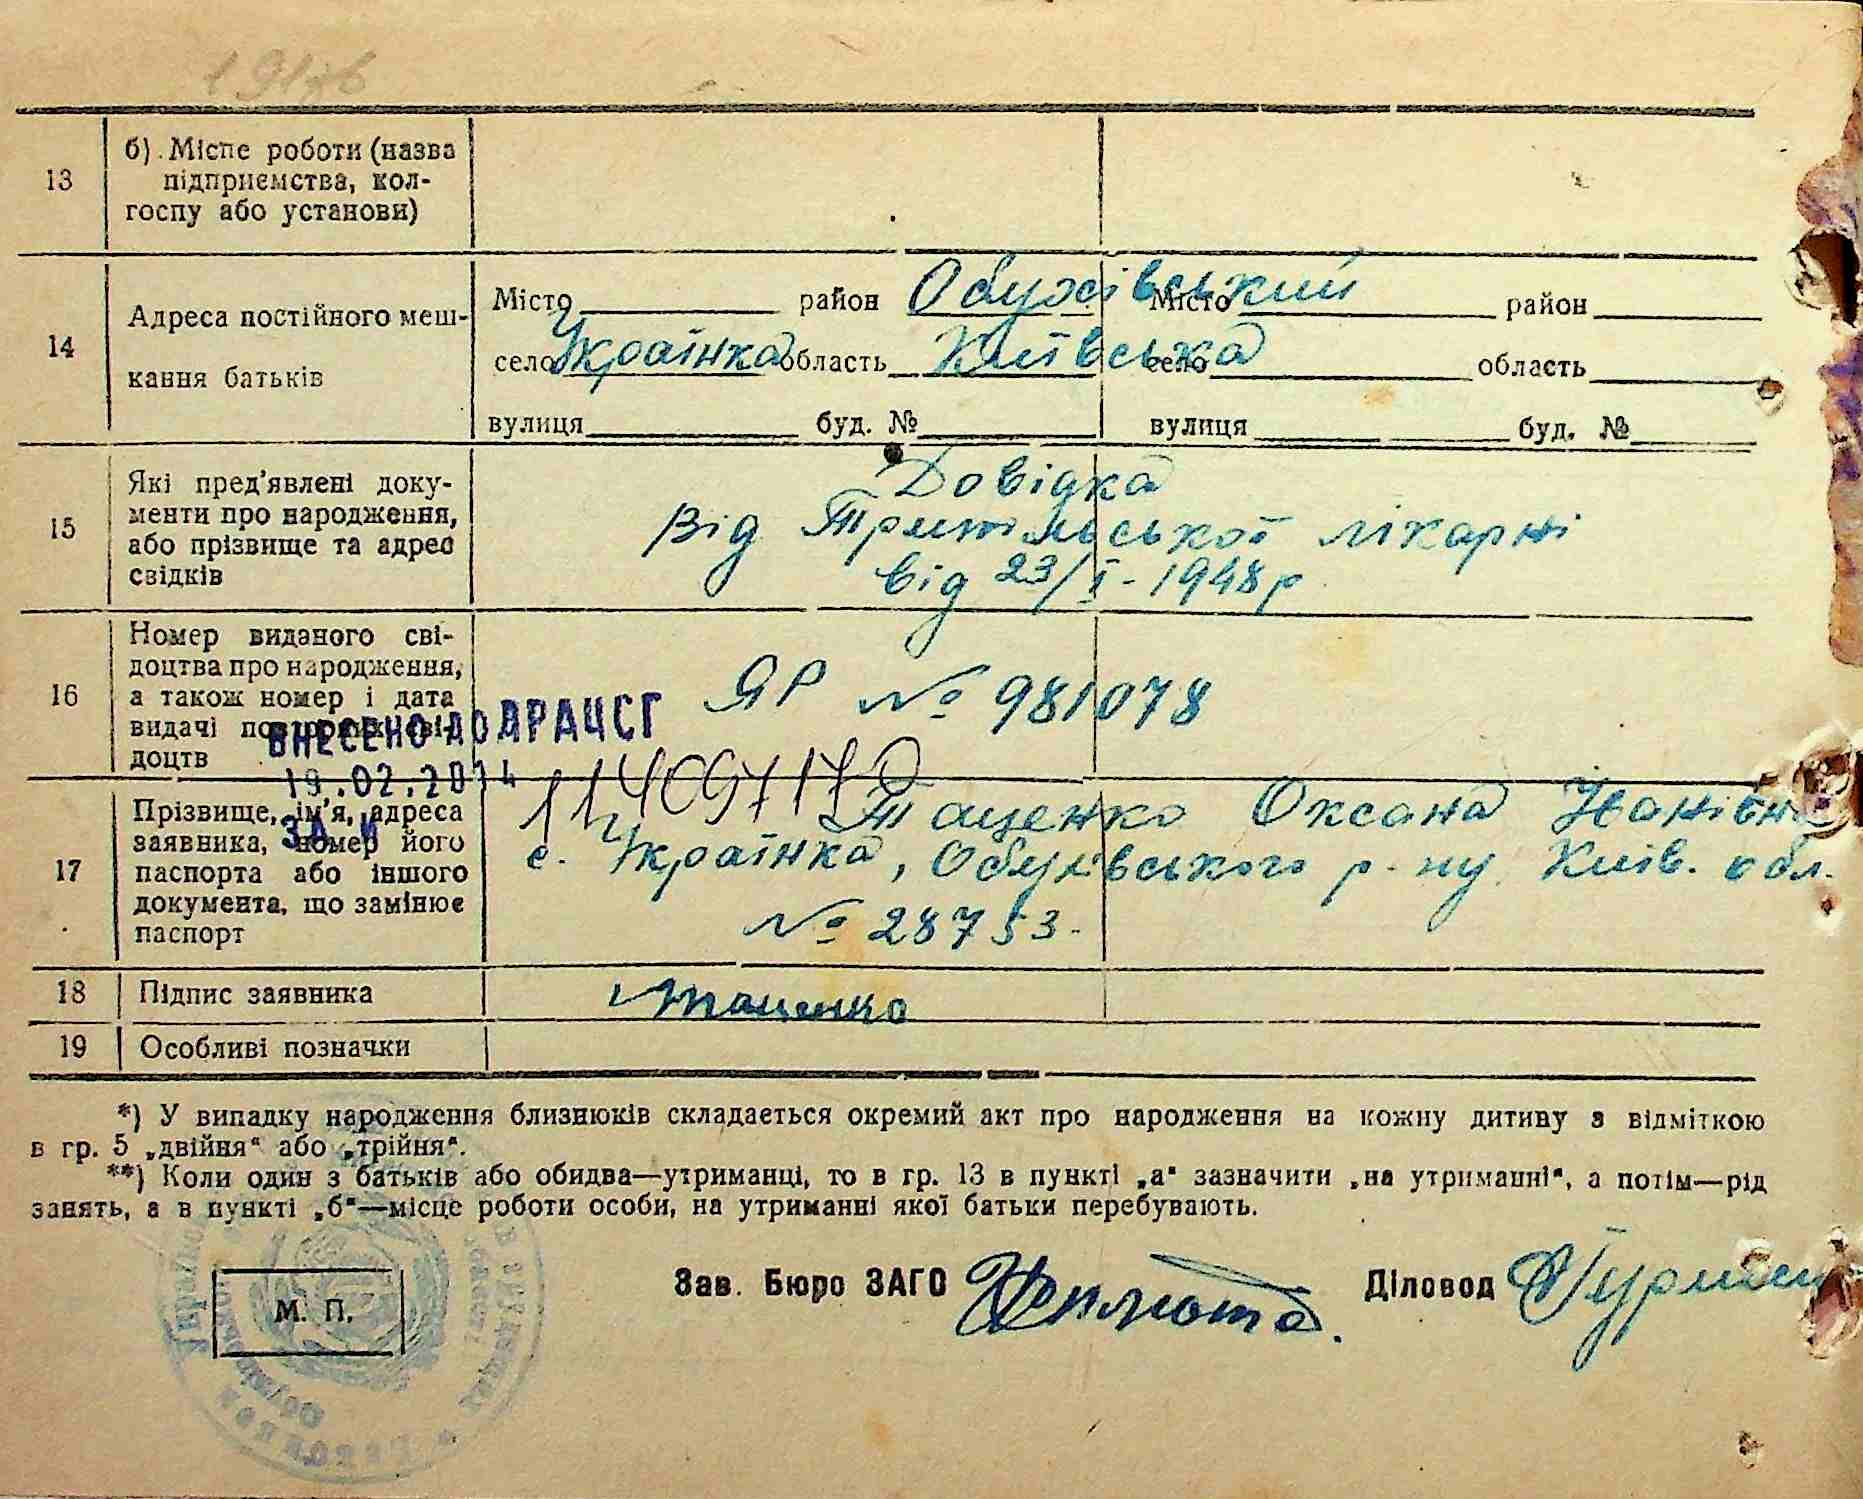 13
б). Місце роботи (назва
підприємства, кол-
госпу або установи)
14
Адреса постійного меш-
кання батьків
Місто район Обухівський Місто район
село Українка область Київська село область
вулиця буд. № вулиця буд. №
15
Які пред'явлені доку-
менти про народження,
або прізвище та адрес
свідків
Довідка
Від Трипільської лікарні
від 23/I - 1948 р
16
Номер виданого сві-
доцтва про народження,
а також номер і дата
видачі повторних сві-
доцтв
ЯР № 981078
ВНЕСЕНО ДО ДРАЦСГ
19.02.2014
ЗА №
17
Прізвище, ім'я, адреса
заявника, номер його
паспорта або іншого
документа, що замінює
паспорт
Таценко Оксана Іванівна
с. Українка, Обухівського р-ну Київ. обл.
№ 28753.
18
Підпис заявника
Таценко
19
Особливі позначки
*) У випадку народження близнюків складається окремий акт про народження на кожну дитину з відміткою
в гр. 5 „двійня“ або „трійня“.
**) Коли один з батьків або обидва—утриманці, то в гр. 13 в пункті „а“ зазначити „на утриманні“, а потім—рід
занять, а в пункті „б“—місце роботи особи, на утриманні якої батьки перебувають.
Зав. Бюро ЗАГС Діловод
М. П.